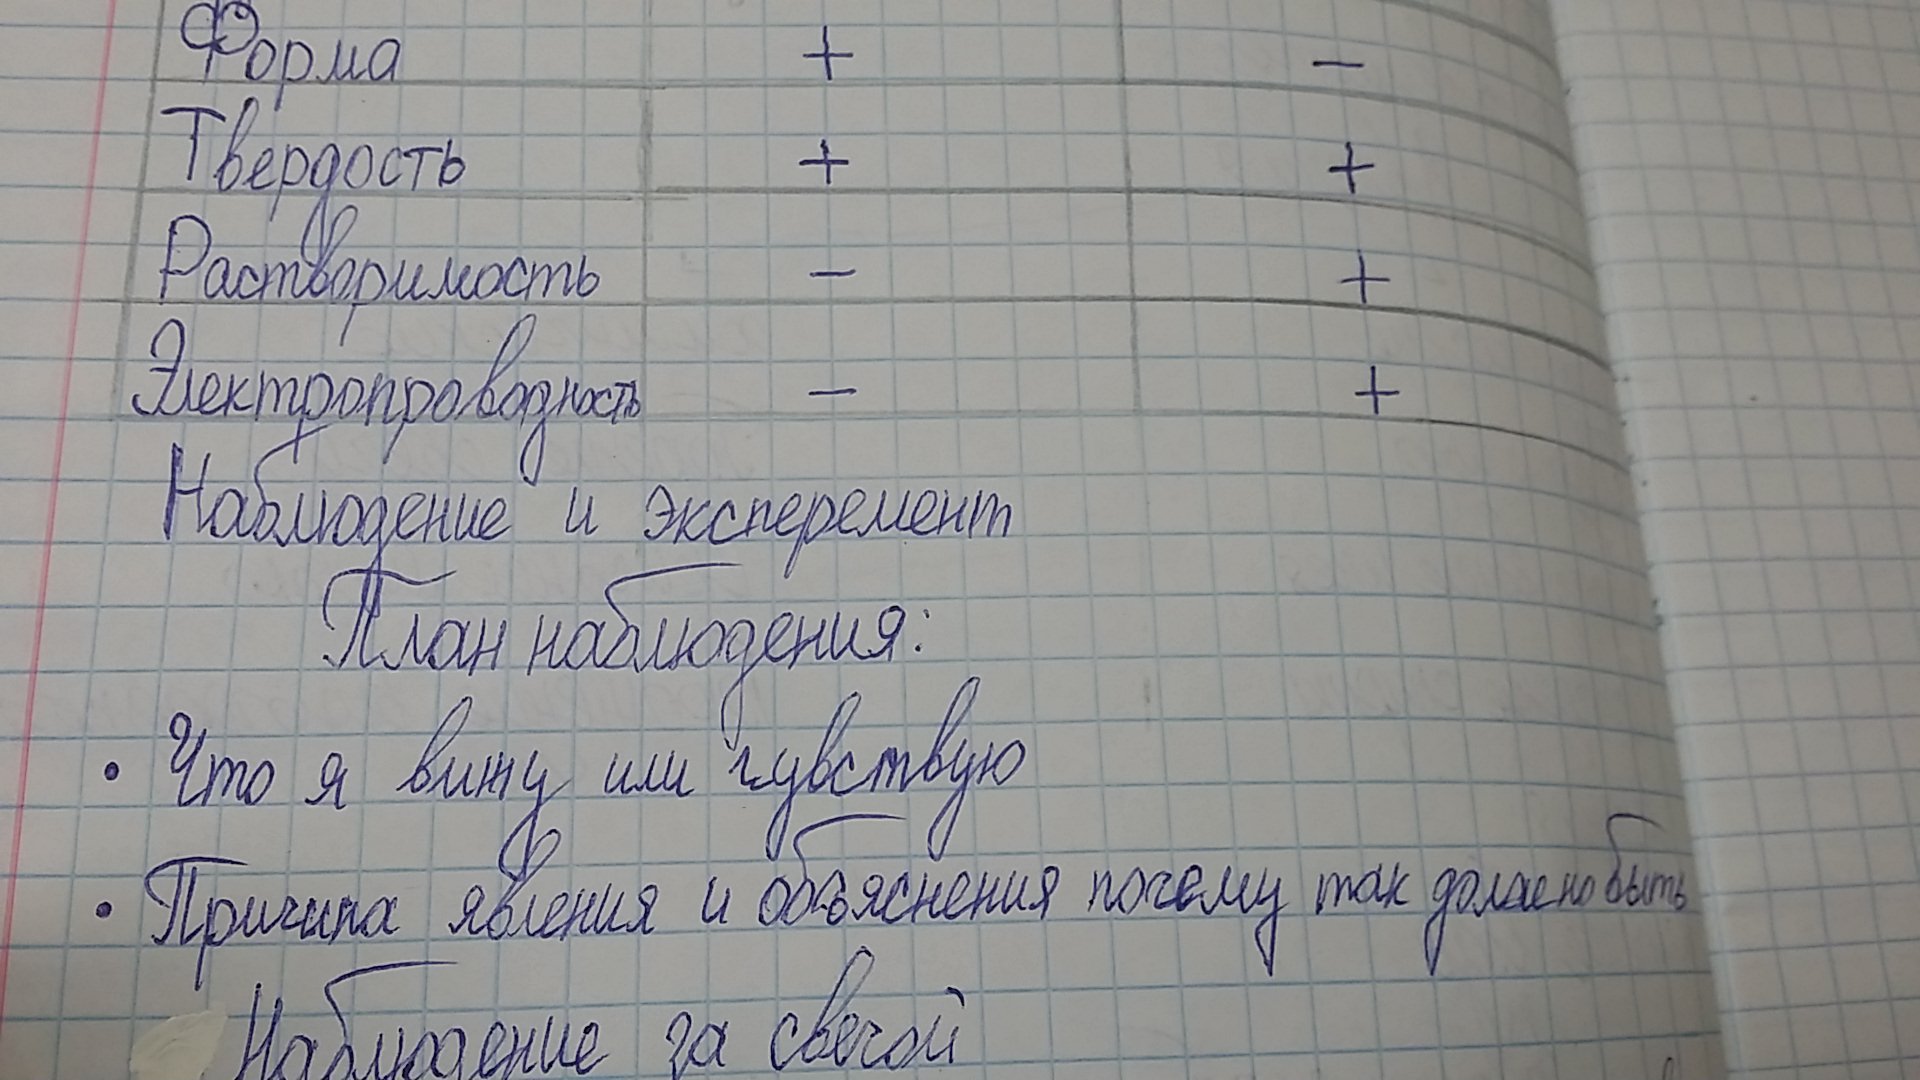 Форма + –
Твердость + +
Растворимость – +
Электропроводность – +
Наблюдение и эксперемент
План наблюдения:
• Что я вижу или чувствую
• Причина явления и объяснения почему так должно быть
Наблюдение за свечой